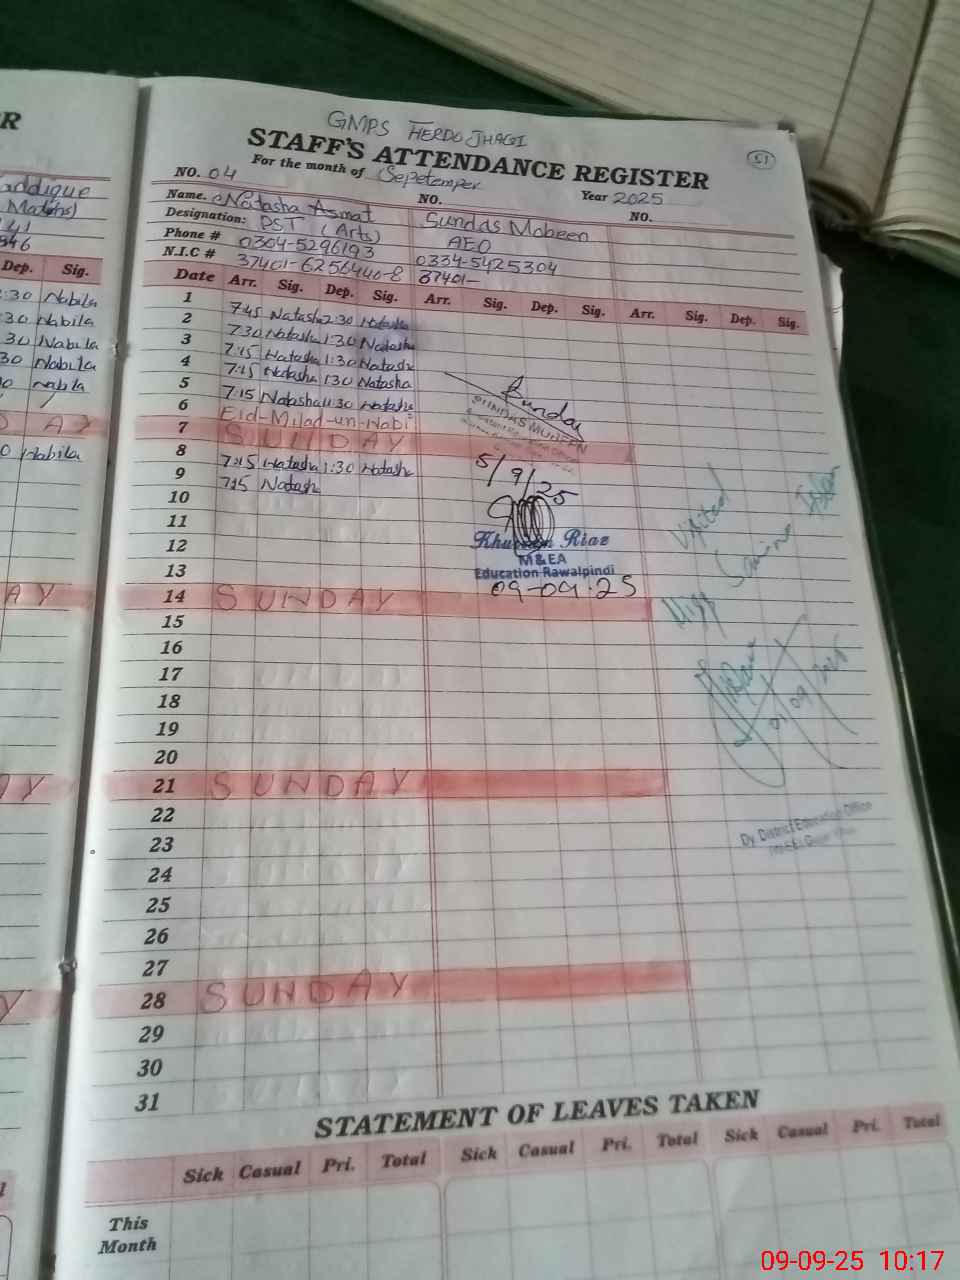 R
addique
Maths)
41
846
Dep. Sig.
:30 Nabila
:30 Nabila
30 Nabila
30 Nabila
0 nabila
D A Y
0 Nabila
A Y
A Y
Y
GMPS HERDO JHAGI
51
STAFF'S ATTENDANCE REGISTER
For the month of Sepetemper Year 2025
NO. 04 NO. NO.
Name. Natasha Asmat Sundas Mobeen
Designation: PST (Arts) AEO
Phone # 0304-5296193 0334-5425304
N.I.C # 37401-6256440-8 37401-
Date Arr. Sig. Dep. Sig. Arr. Sig. Dep. Sig. Arr. Sig. Dep. Sig.
1 7:45 Natasha 2:30 Natasha
2 7:30 Natasha 1:30 Natasha
3 7:15 Natasha 1:30 Natasha
4 7:15 Natasha 1:30 Natasha
5 7:15 Natasha 11:30 Natasha
6 Eid-Milad-un-Nabi
7 SUNDAY
8 7:15 Natasha 1:30 Natasha
9 7:15 Natash
10
11
12
13
14 SUNDAY
15
16
17
18
19
20
21 SUNDAY
22
23
24
25
26
27
28 SUNDAY
29
30
31
Sundas
SUNDAS MOBEEN
5/9/25
Riaz
M&EA
Education Rawalpindi
09-09-25
Visited
Miss
01/09/2025
Dy. District Education Office
STATEMENT OF LEAVES TAKEN
Sick Casual Pri. Total Sick Casual Pri. Total Sick Casual Pri. Total
This
Month
09-09-25 10:17